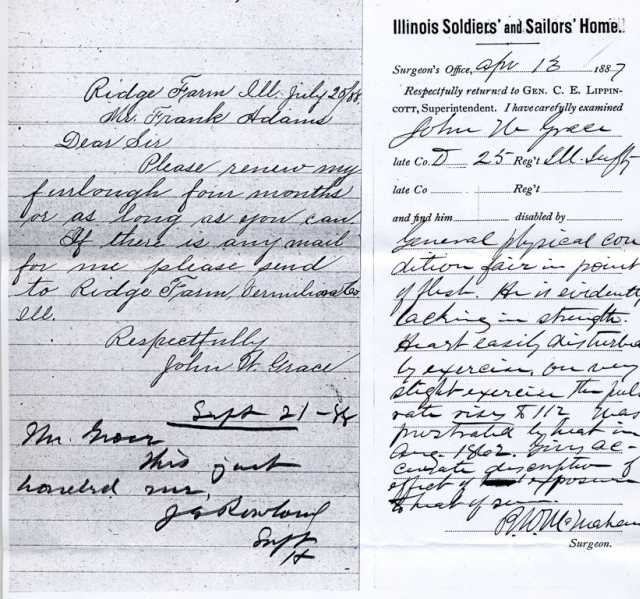 Ridge Farm Ill. July 20/88
Mr. Frank Adams
Dear Sir
Please renew my
furlough four months
or as long as you can
If there is any mail
for me please send
to Ridge Farm, Vermilion Co
Ill.
Respectfully
John W. Grace
Sept 21-88
Mr.
this just
handed me,
J G Rowland
Supt
H
Illinois Soldiers' and Sailors' Home.
Surgeon's Office, Apr 13 1887
Respectfully returned to GEN. C. E. LIPPIN-
COTT, Superintendent. I have carefully examined
John W Grace
late Co. D 25 Reg't Ill. Infty
late Co Reg't
and find him disabled by
General physical con
dition fair in point
of flesh. He is evidently
lacking in strength.
Heart easily disturbed
by exercise, on very
slight exercise the pulse
rate rises to 112 Was
prostrated by heat in
Aug. 1862. Gives ac-
curate description of
effect of exposure
to heat of sun.
McMahan
Surgeon.